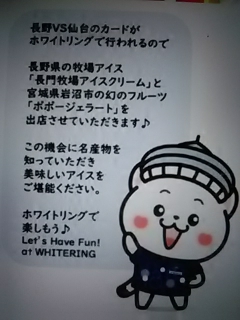 長野VS仙台のカードが
ホワイトリングで行われるので
長野県の牧場アイス
「長門牧場アイスクリーム」と
宮城県岩沼市の幻のフルーツ
「ポポージェラート」を
出店させていただきます♪
この機会に名産物を
知っていただき
美味しいアイスを
ご堪能ください。
ホワイトリングで
楽しもう♪
Let's Have Fun!
at WHITERING